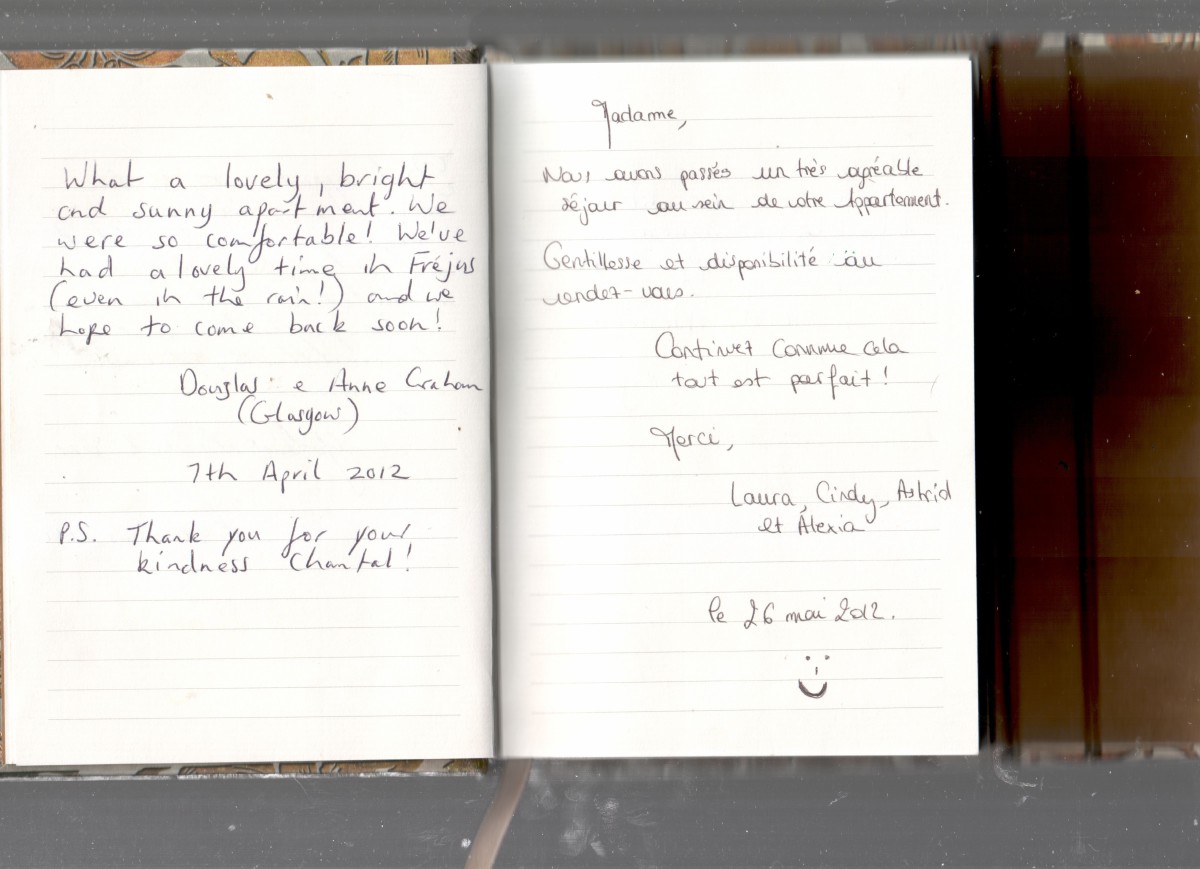 What a lovely, bright
and sunny apartment. We
were so comfortable! We've
had a lovely time in Fréjus
(even in the rain!) and we
hope to come back soon!
Douglas & Anne Graham
(Glasgow)
7th April 2012
P.S. Thank you for your
kindness Chantal!
Madame,
Nous avons passés un très agréable
séjour au sein de votre Appartement.
Gentillesse et disponibilité au
rendez-vous.
Continuez comme cela
tout est parfait!
Merci,
Laura, Cindy, Astrid
et Alexia
le 26 mai 2012.